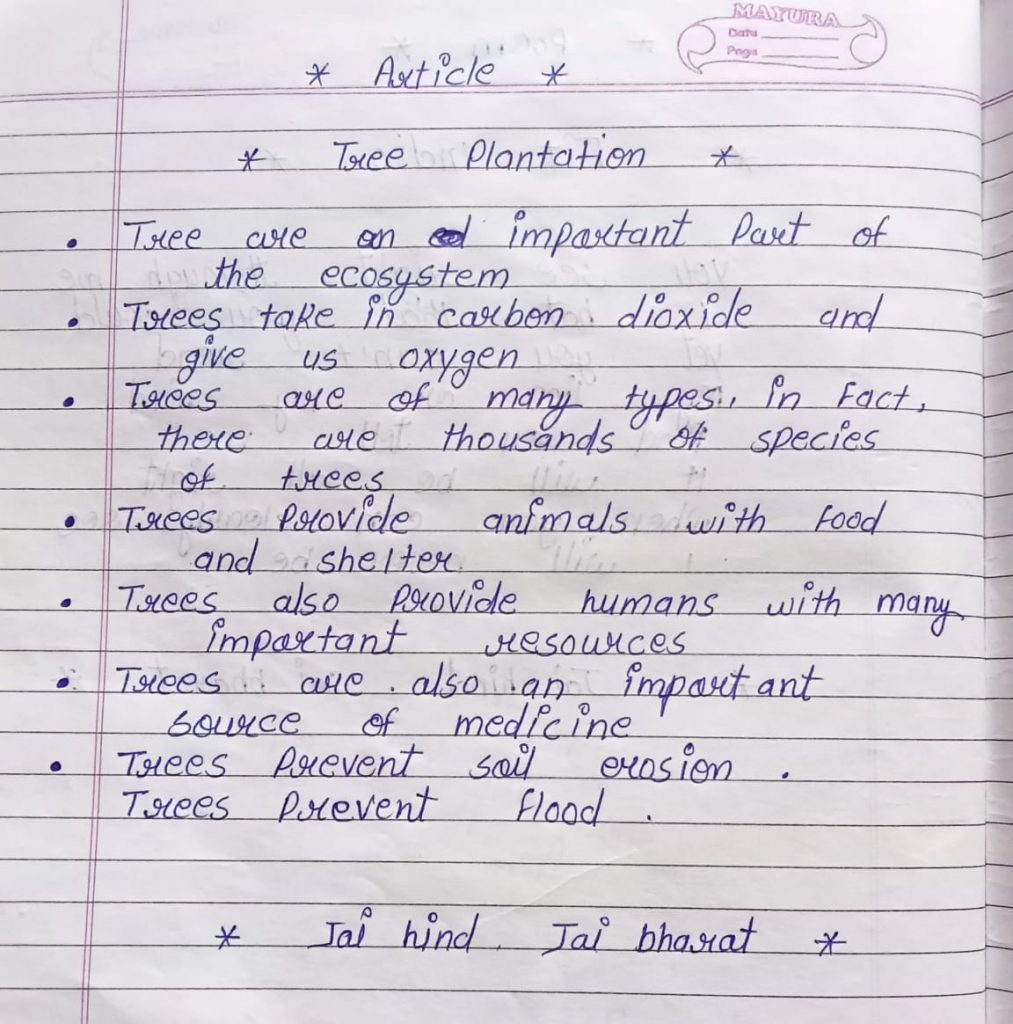 MAYURA
Date
Page
* Article *
* Tree Plantation *
• Tree are an important Part of
the ecosystem
• Trees take in carbon dioxide and
give us oxygen
• Trees are of many types. In Fact,
there are thousands of species
of trees
• Trees Provide animals with Food
and shelter
• Trees also Provide humans with many
important resources
• Trees are also an important
source of medicine
• Trees Prevent soil erosion.
Trees Prevent flood.
* Jai hind. Jai bharat *